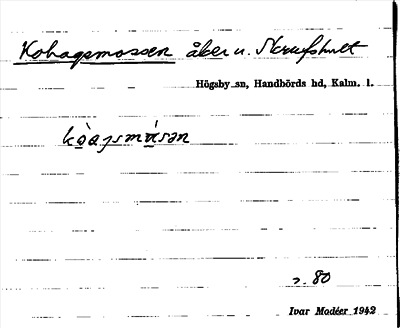 Kohagsmossen åker u. Skrufshult
Högsby sn, Handbörds hd, Kalm. l.
kòagsmásən
s. 80
Ivar Modéer 1942